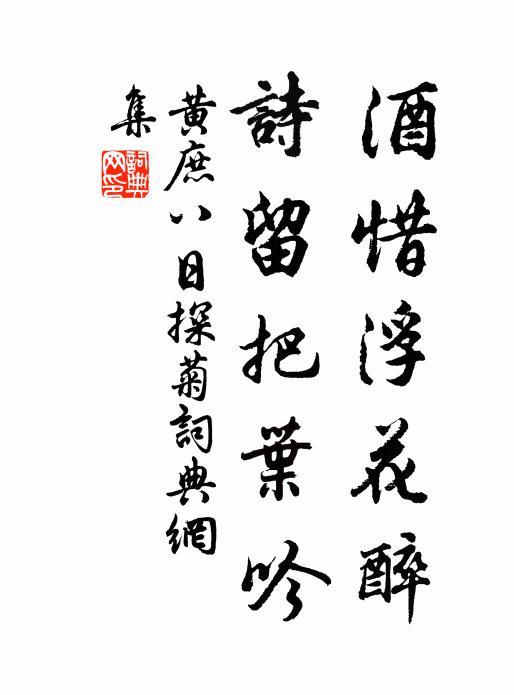 酒惜浮花醉
詩留把葉吟
黃庶八日探菊詞典網
集
詞典
网印